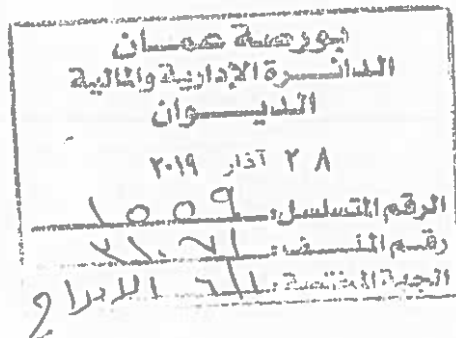 بورصة عمان
الدائرة الإدارية والمالية
الديوان
٢٨ آذار ٢٠١٩
الرقم المتسلسل: ١٥٥٩
رقم الملف:
الجهة المختصة: الادراج